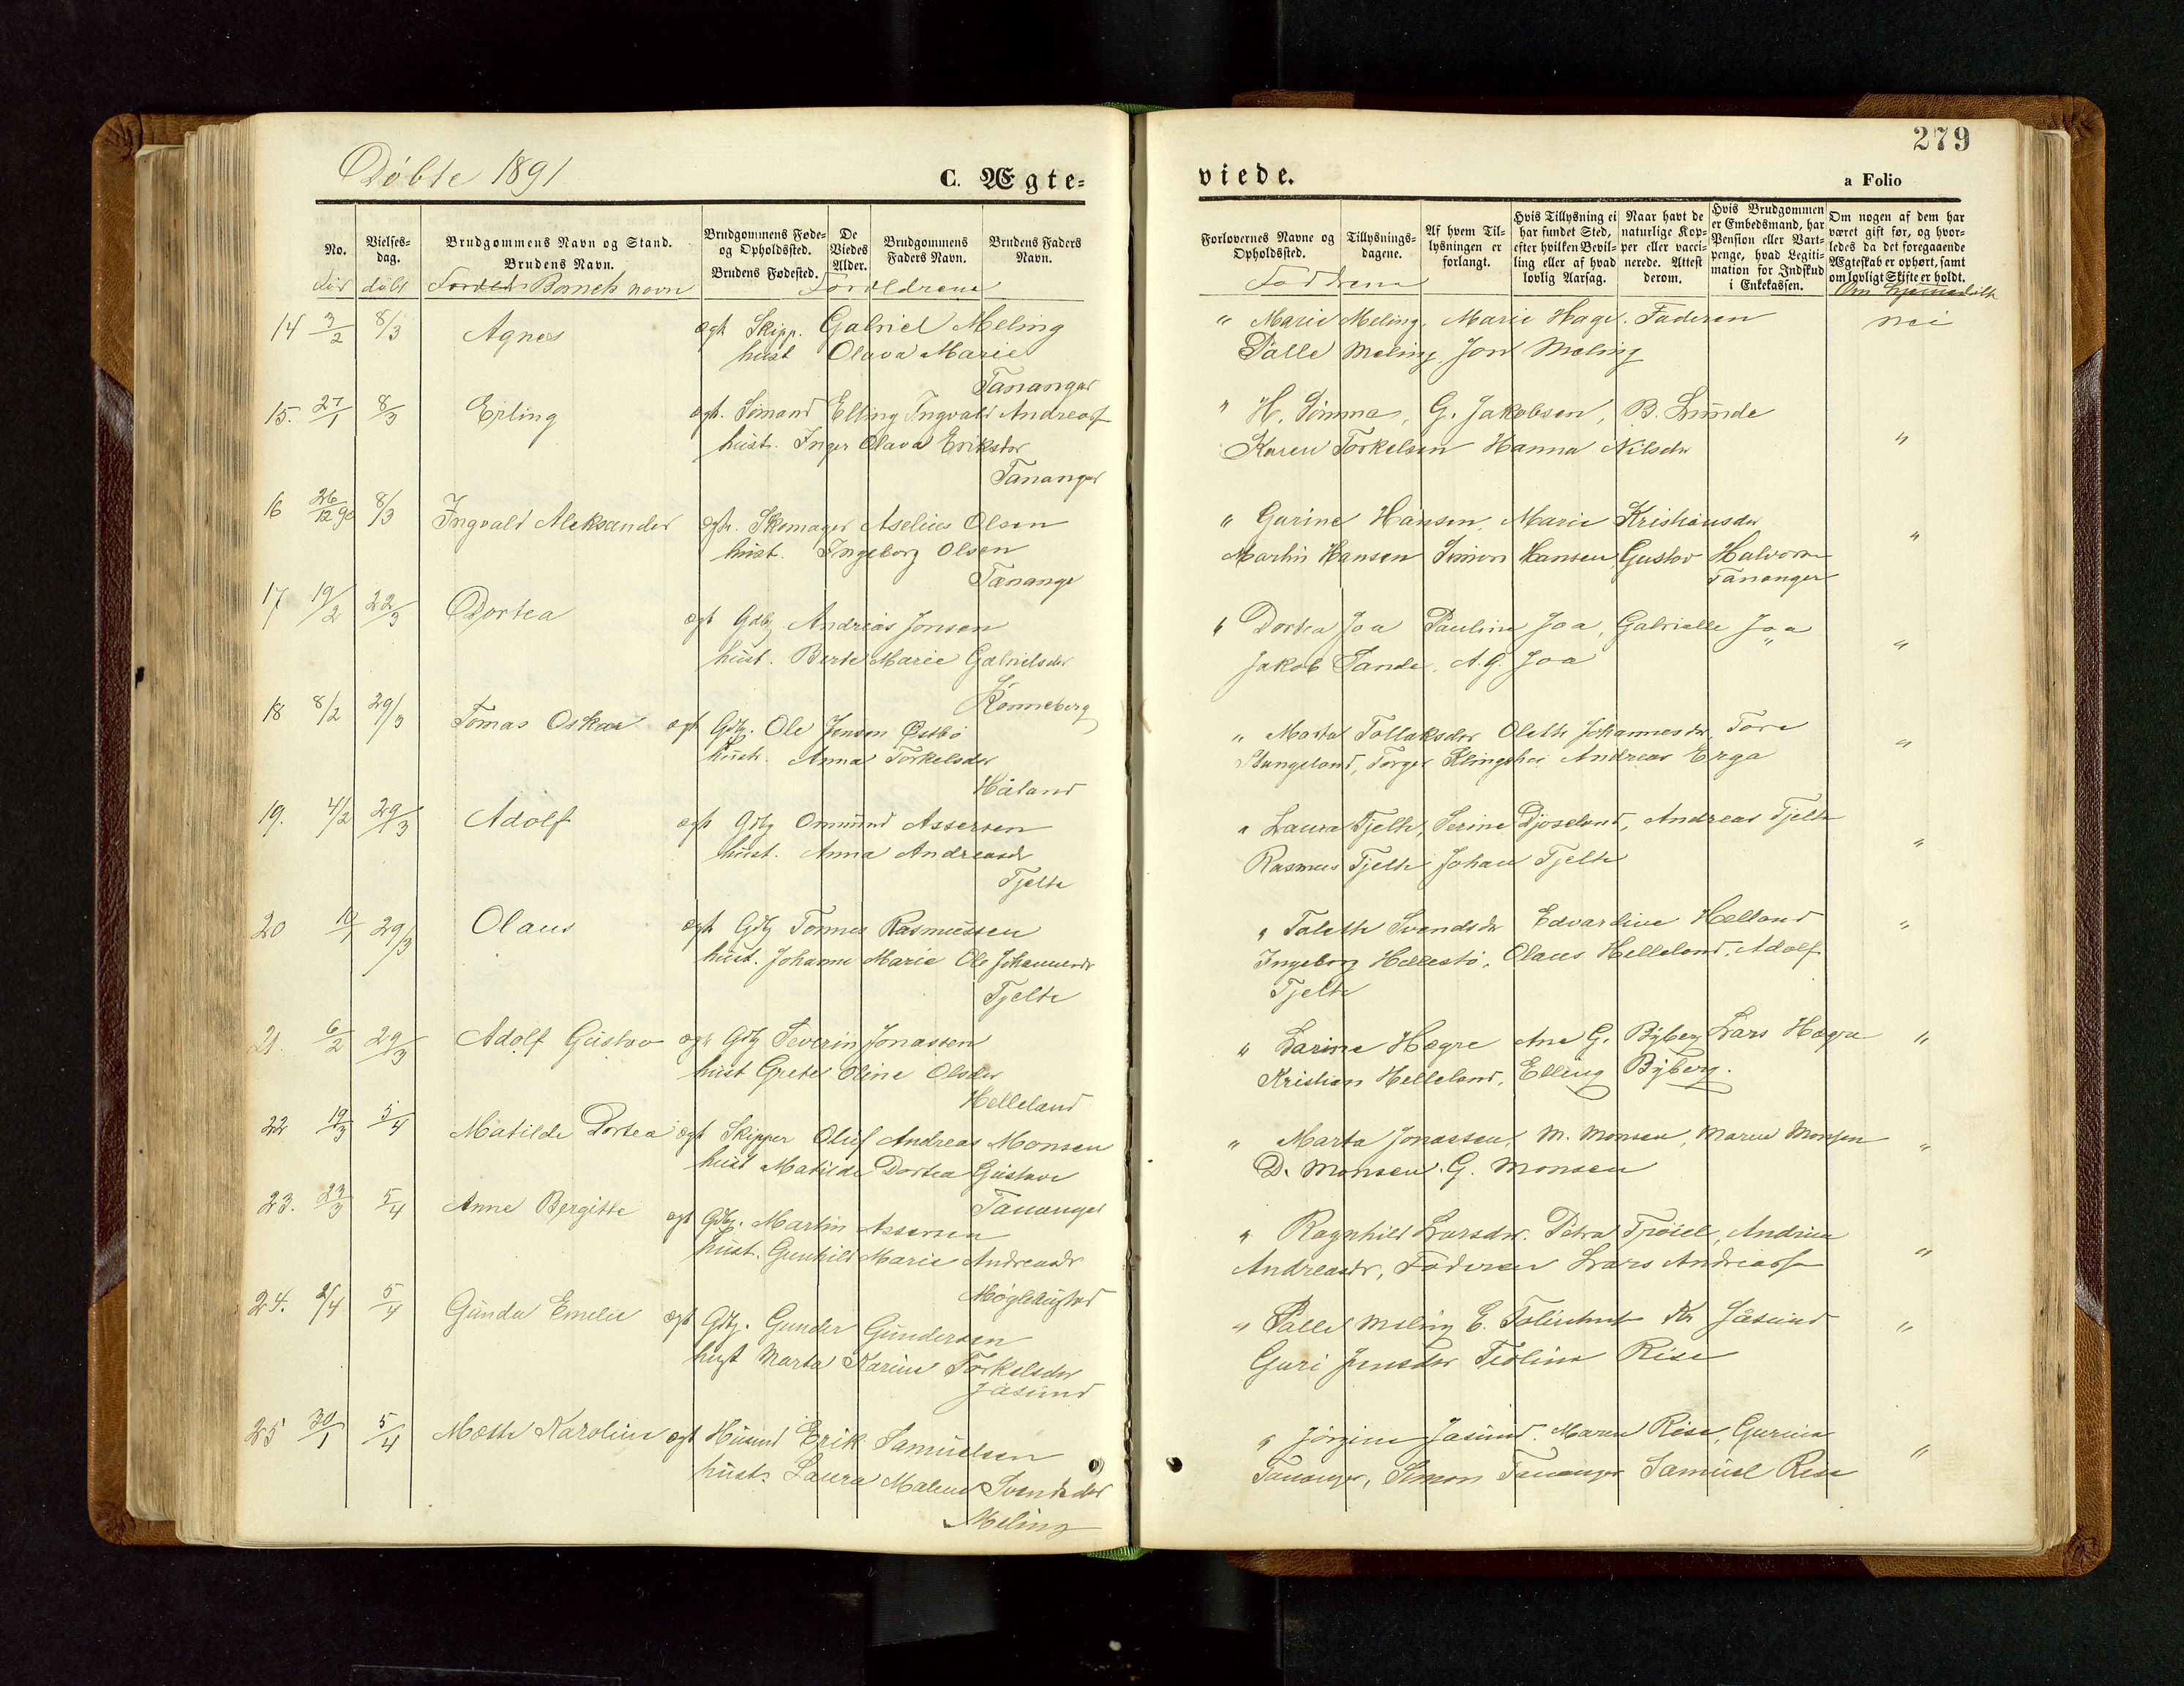 279
Døbte 1891
C. Ægte=
viede.
a Folio
No.
Vielses-
dag.
Brudgommens Navn og Stand.
Brudens Navn.
Brudgommens Føde-
og Opholdssted.
Brudens Fødested.
De
Viedes
Alder.
Brudgommens
Faders Navn.
Brudens Faders
Navn.
Forlovernes Navne og
Opholdssted.
Tillysnings-
dagene.
Af hvem Til-
lysningen er
forlangt.
Hvis Tillysning ei
har fundet Sted,
efter hvilken Bevil-
ling eller af hvad
lovlig Aarsag.
Naar havt de
naturlige Kop-
per eller vacci-
nerede. Attest
derom.
Hvis Brudgommen
er Embedsmand, har
Pension eller Vart-
penge, hvad Legiti-
mation for Indskud
i Enkekassen.
Om nogen af dem har
været gift før, og hvor-
ledes da det foregaaende
Ægteskab er ophørt, samt
om lovligt Skifte er holdt.
født døbt Barnets navn Foreldrene
Faddrene Om hjemmedøbt
14 3/2 8/3 Agnes ægt Skipp. Gabriel Meling
hust Olava Marie
Tananger
" Marie Meling, Marie Hage. Faderen nei
Palle Meling Jon Meling
15. 27/1 8/3 Erling ægt. Sømand Elling Ingvald Andreass
hust. Inger Olava Eriksdtr
Tananger
" H. Sømme, G. Jakobsen, B. Lunde
Karen Torkelsen Hanna Nilsdtr "
16 26/12 90 8/3 Ingvald Aleksander ægt. Skomager Aselius Olsen
hust. Ingeborg Olsen
Tanange
" Gurine Hansen, Marie Kristiansdtr
Martin Hansen Simon Hansen Gustav Halvorsen "
Tananger
17 19/2 22/3 Dortea ægt Gdbg Andreas Jonsen
hust. Berte Marie Gabrielsdtr
Rønneberg
" Dortea Joa Pauline Joa, Gabrielle Joa
Jakob Sande, A. G. Joa "
18 8/2 29/3 Tomas Oskar ægt Gdbg. Ole Jensen Østbø
hust. Anna Torkelsdtr
Håland
" Marta Tollaksdtr Olette Johannesdtr, Tore
Stangeland, Torger Klingshei Andreas Erga "
19. 4/2 29/3 Adolf ægt Gdbg Ommund Assersen
hust. Anna Andreasdr
Tjelte
" Laura Tjelte, Serine Djoseland, Andreas Tjelte
Rasmus Tjelte Johan Tjelte "
20 10/1 29/3 Olaus ægt Gdbg Tønnes Rasmussen
hust. Johanne Marie Ole Johannesdr
Tjelte
" Talette Svendsdr Edvardine Helland "
Ingeborg Hellestø, Olaus Helleland, Adolf
Tjelte
21. 6/2 29/3 Adolf Gustav ægt Gdbg Severin Jonassen
hust Grete Oline Olsdtr
Helleland
" Larine Hægre Ane G. Byberg Lars Hægre "
Kristian Helleland, Elling Byberg.
22 19/3 5/4 Matilde Dortea ægt Skipper Oluf Andreas Monsen
hust Matilde Dortea Gustava
Tananger
" Marta Jonassen, M. Monsen, Maren Monsen "
D. Monsen. G. Monsen
23. 23/3 5/4 Anne Bergitte ægt Gdbg. Martin Assersen
hust. Gunhild Marie Andreasdr
" Ragnhild Larsdtr. Petra Andrea
Andreasdr, Faderen Lars Andreass "
24. 2/4 5/4 Gunda Emelie ægt Gdbg. Gunder Gundersen
hust Marta Karine Torkelsdtr
Jåsund
" Palle Meling E. Kr Jåsund "
Guri Jensdtr Teoline Risa
25 30/1 5/4 Mette Karoline ægt Husmd Erik Samuelsen
hust. Laura Malene Svendsdtr
Meling
" Jørgine Jåsund. Maren Risa, Gurine
Tananger, Simon Tananger Samuel Risa "